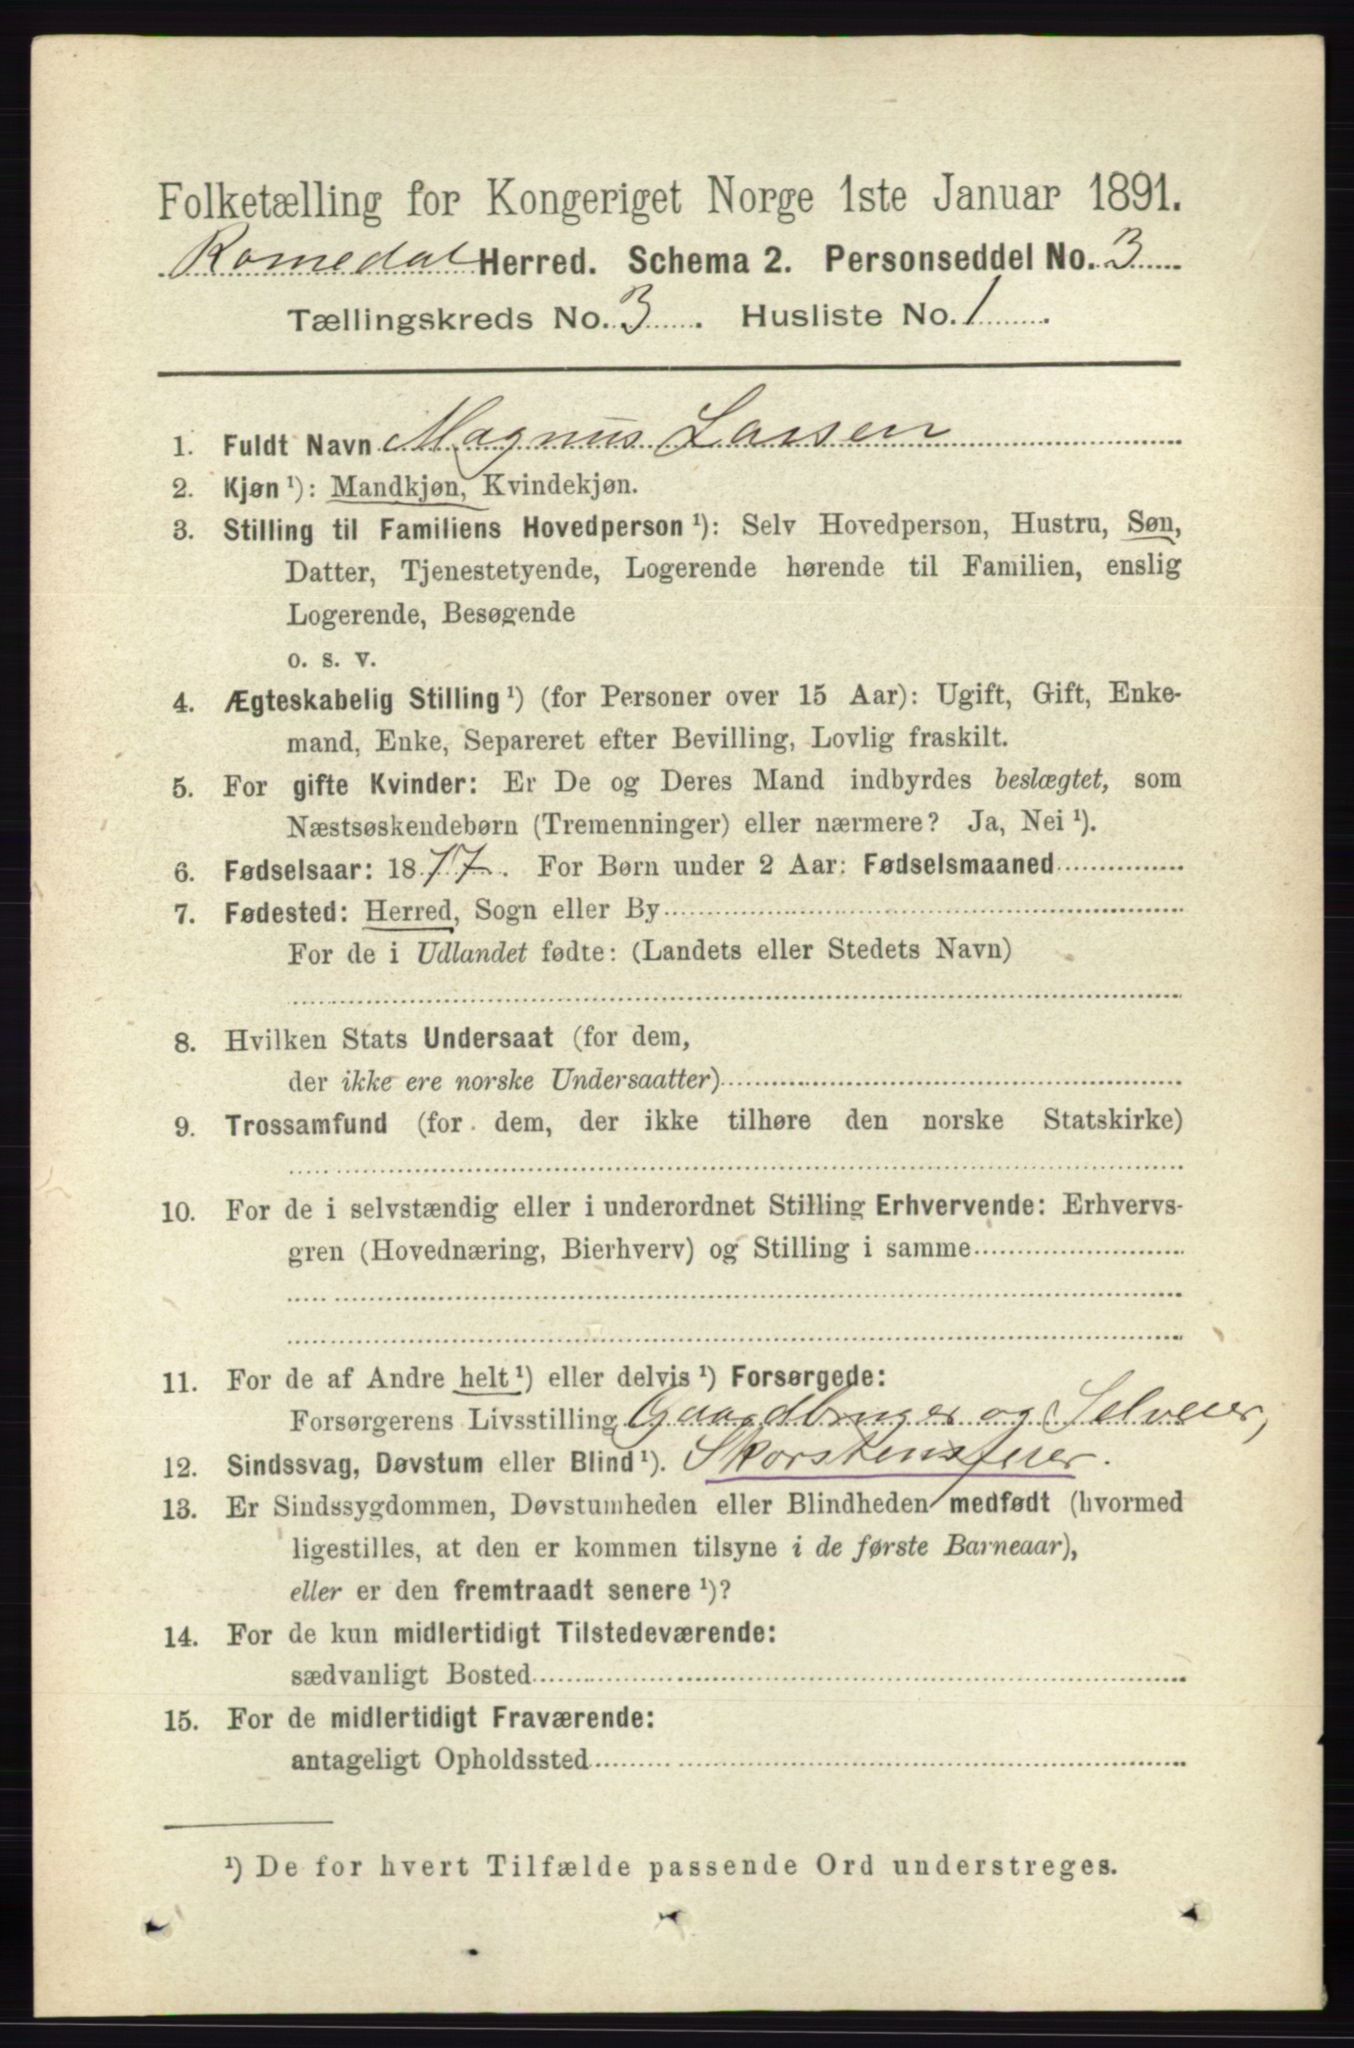 Folketælling for Kongeriget Norge 1ste Januar 1891.
Romedal Herred. Schema 2. Personseddel No. 3
Tællingskreds No. 3. Husliste No. 1.
1. Fuldt Navn Magnus Larsen
2. Kjøn¹): Mandkjøn, Kvindekjøn.
3. Stilling til Familiens Hovedperson¹): Selv Hovedperson, Hustru, Søn,
Datter, Tjenestetyende, Logerende hørende til Familien, enslig
Logerende, Besøgende
o. s. v.
4. Ægteskabelig Stilling¹) (for Personer over 15 Aar): Ugift, Gift, Enke-
mand, Enke, Separeret efter Bevilling, Lovlig fraskilt.
5. For gifte Kvinder: Er De og Deres Mand indbyrdes beslægtet, som
Næstsøskendebørn (Tremenninger) eller nærmere? Ja, Nei¹).
6. Fødselsaar: 1877. For Børn under 2 Aar: Fødselsmaaned
7. Fødested: Herred, Sogn eller By
For de i Udlandet fødte: (Landets eller Stedets Navn)
8. Hvilken Stats Undersaat (for dem,
der ikke ere norske Undersaatter)
9. Trossamfund (for dem, der ikke tilhøre den norske Statskirke)
10. For de i selvstændig eller i underordnet Stilling Erhvervende: Erhvervs-
gren (Hovednæring, Bierhverv) og Stilling i samme
11. For de af Andre helt¹) eller delvis¹) Forsørgede:
Forsørgerens Livsstilling Gaardbruger og Selveier,
12. Sindssvag, Døvstum eller Blind¹). Skorstensfeier.
13. Er Sindssygdommen, Døvstumheden eller Blindheden medfødt (hvormed
ligestilles, at den er kommen tilsyne i de første Barneaar),
eller er den fremtraadt senere¹)?
14. For de kun midlertidigt Tilstedeværende:
sædvanligt Bosted
15. For de midlertidigt Fraværende:
antageligt Opholdssted
¹) De for hvert Tilfælde passende Ord understreges.